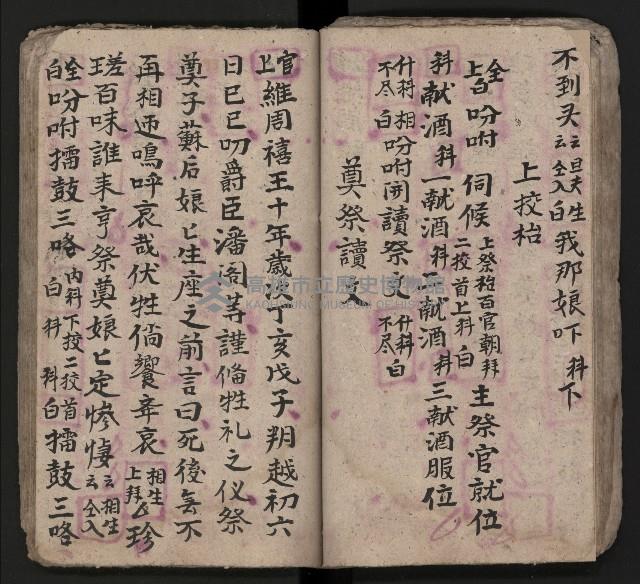 不到灵云云旦生仝入白我那娘吓 科下
上挍枱
仝上白吩咐 伺候 上祭枱百官朝拜二挍首上科白 主祭官就位
科献酒科一献酒科二献酒科三献酒服位
什科不尽 相白 吩咐開讀祭文 什科不尽白
奠祭讀
官上維周禧王十年歲次丁亥戊子朔越初六
日己巳叨爵臣潘阁等謹偹牲礼之仪祭
奠子蘇后娘匕生座之前言曰死後無不
再相逥嗚呼哀哉伏牲倘饗弃哀 相生上拜 珍
瑳百味誰来亨祭奠娘匕定惨悽 云云相生仝入
仝白吩咐擂鼓三咯 内科下挍二挍首白科 科白擂鼓三咯
高雄市立歷史博物館
KAOHSIUNG MUSEUM OF HISTORY